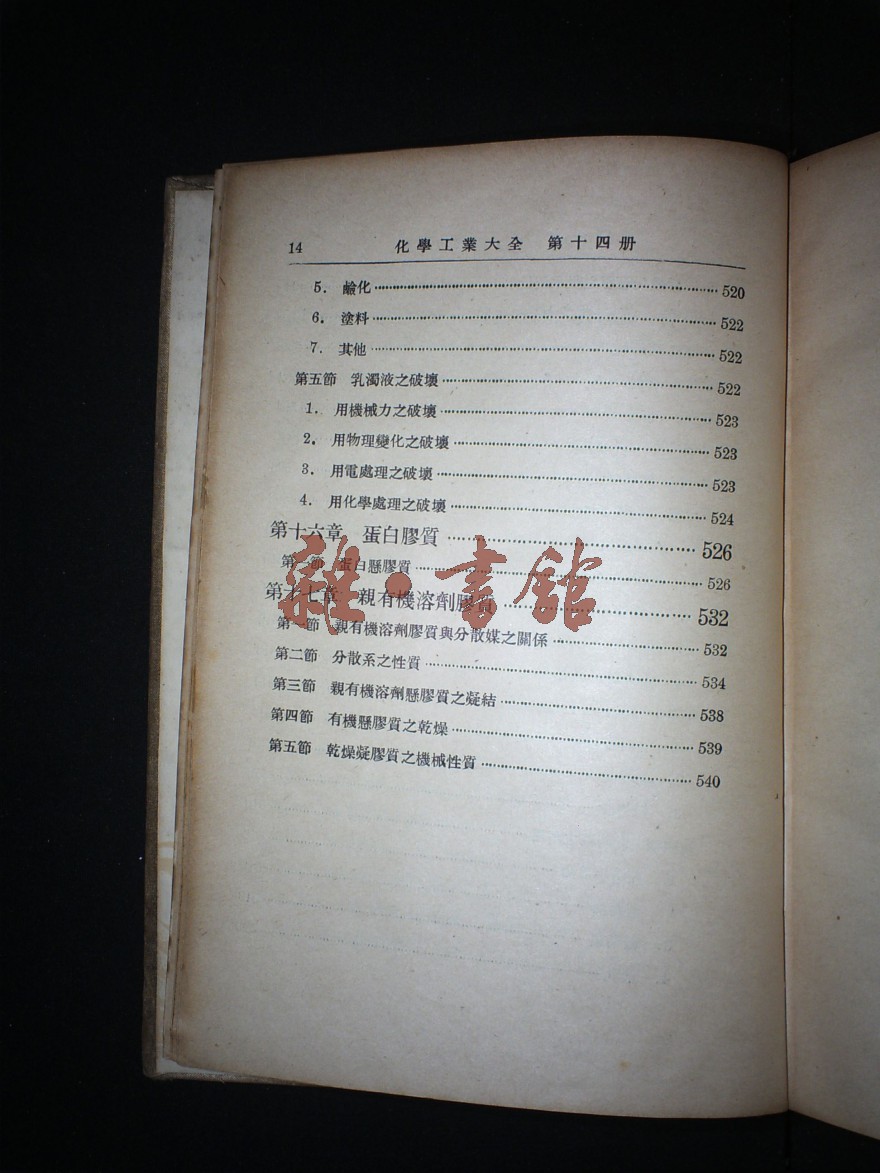 14 化學工業大全 第十四册
5. 鹼化 520
6. 塗料 522
7. 其他 522
第五節 乳濁液之破壞 522
1. 用機械力之破壞 523
2. 用物理變化之破壞 523
3. 用電處理之破壞 523
4. 用化學處理之破壞 524
第十六章 蛋白膠質 526
第一節 蛋白懸膠質 526
第十七章 親有機溶劑膠質 532
第一節 親有機溶劑膠質與分散媒之關係 532
第二節 分散系之性質 534
第三節 親有機溶劑懸膠質之凝結 538
第四節 有機懸膠質之乾燥 539
第五節 乾燥凝膠質之機械性質 540
雜·書館